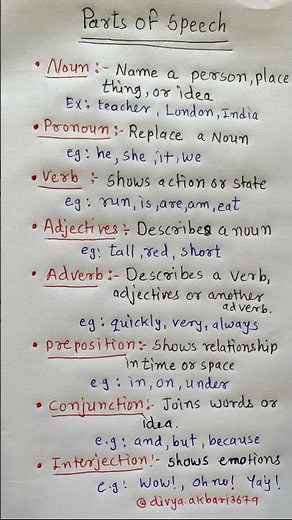 Parts of Speech
• Noun :- Name a person, place
thing, or idea
Ex: teacher, London, India
• Pronoun :- Replace a Noun
eg: he, she, it, we
• Verb :- Shows action or state
eg: run, is, are, am, eat
• Adjectives :- Describes a noun
eg: tall, red, short
• Adverb :- Describes a verb,
adjectives or another
adverb.
eg: quickly, very, always
• preposition :- Shows relationship
in time or space
eg: in, on, under
• Conjunction :- Joins words or
idea.
e.g: and, but, because
• Interjection :- shows emotions
e.g: Wow!, oh no! Yay!
@divya.akbari3679